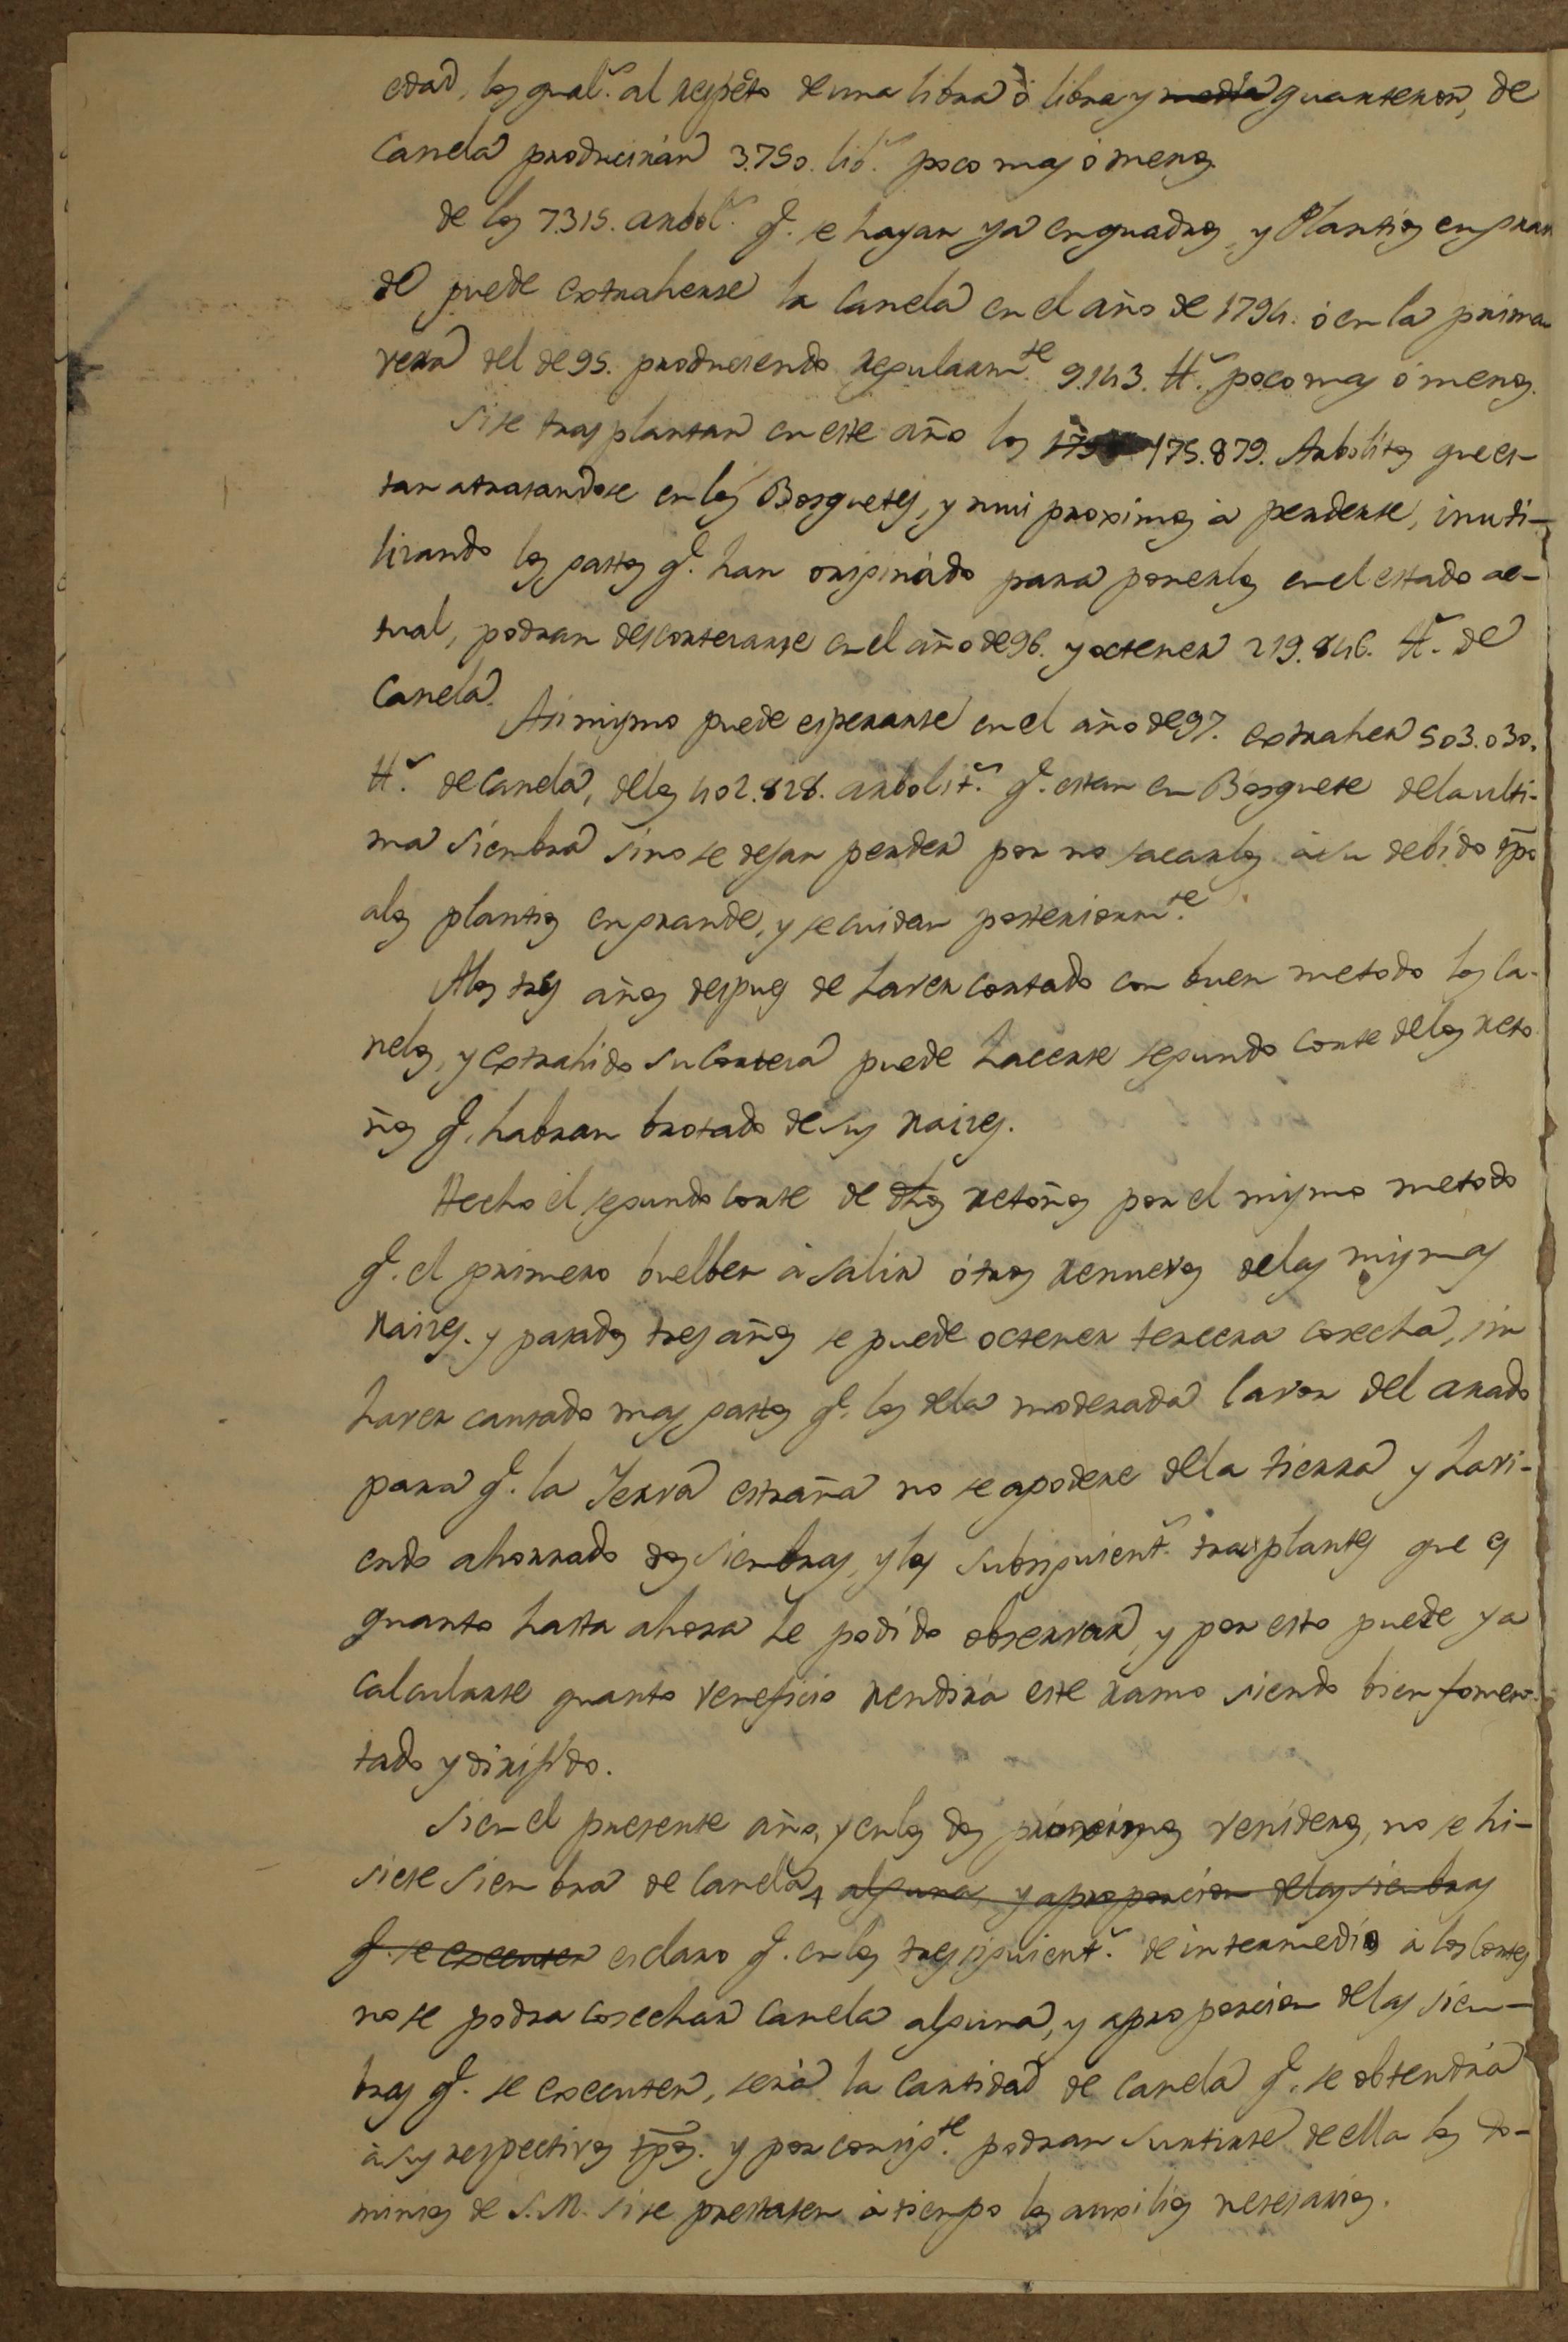 edad, los qual.s al respeto de una libra ò libra y media quarteron, de
Canela produciràn 3.750. lib.s poco mas ò menos.
de los 7.315. arbol.s q.e se hayan ya en quadros, y Plantios en gran
de puede extraherse la Canela en el año de 1794. ò en la prima
vera del de 95. produciendo regularm.te 9.143. tt.s poco mas ò menos.
Si se trasplantan en este año los 175 175.879. Arbolitos que es-
tan atrasandose en los Bosquetes, y mui proximos à perderse, inuti-
lizando los gastos q.e han originàdo para ponerlos en el estado ac-
tual, podran descortezarse en el año de 96. y octener 219.846. tt.s de
Canela.
Asimismo puede esperarse en el año de 97. extraher 503.030.
tt.s de Canela, de los 402.828. arbolit.s q.e estan en Bosquete de la ulti-
ma siembra si no se dejan perder por no sacarlos à su debido tpō
a los plantios en grande, y se cuidan posteriorm.te
A los tres años despues de haver cortado con buen metodo los Ca-
nelos, y extrahido su Corteza puede hacerse segundo corte de los reto
ños q.e habran brotado de sus raizes.
Hecho el segundo corte de dhos retoños por el mismo metodo
q.e el primero buelben à salir ótros renuevos de las mismas
raizes. y pasados tres años se puede octener tercera cosecha, sin
haver causado mas gastos q.e los de la moderada lavor del arado
para q.e la Yerva estraña no se apodere de la tierra y havi-
endo ahorrado dos siembras, y los subsiguient.s trasplantes que es
quanto hasta ahora he podido observar, y por esto puede ya
calcularse quanto veneficio rendirà este ramo siendo bien fomen-
tado y dirijido.
Si en el presente año, y en los dos proximos venideros, no se hi-
siese siembra de Canela, alguna, y a proporcion de las siembras
q.e se executen es claro q.e en los tres siguient.s de intermedio à los Cortes
no se podra cosechar Canela alguna, y a proporcion de las siem-
bras q.e se executen, serà la Cantidad de Canela q.e se obtendrà
à sus respectivos tpōs. y por consig.te podran surtirse de ella los Do-
minios de S.M. si se prestasen à tiempo los auxilios nesesarios.